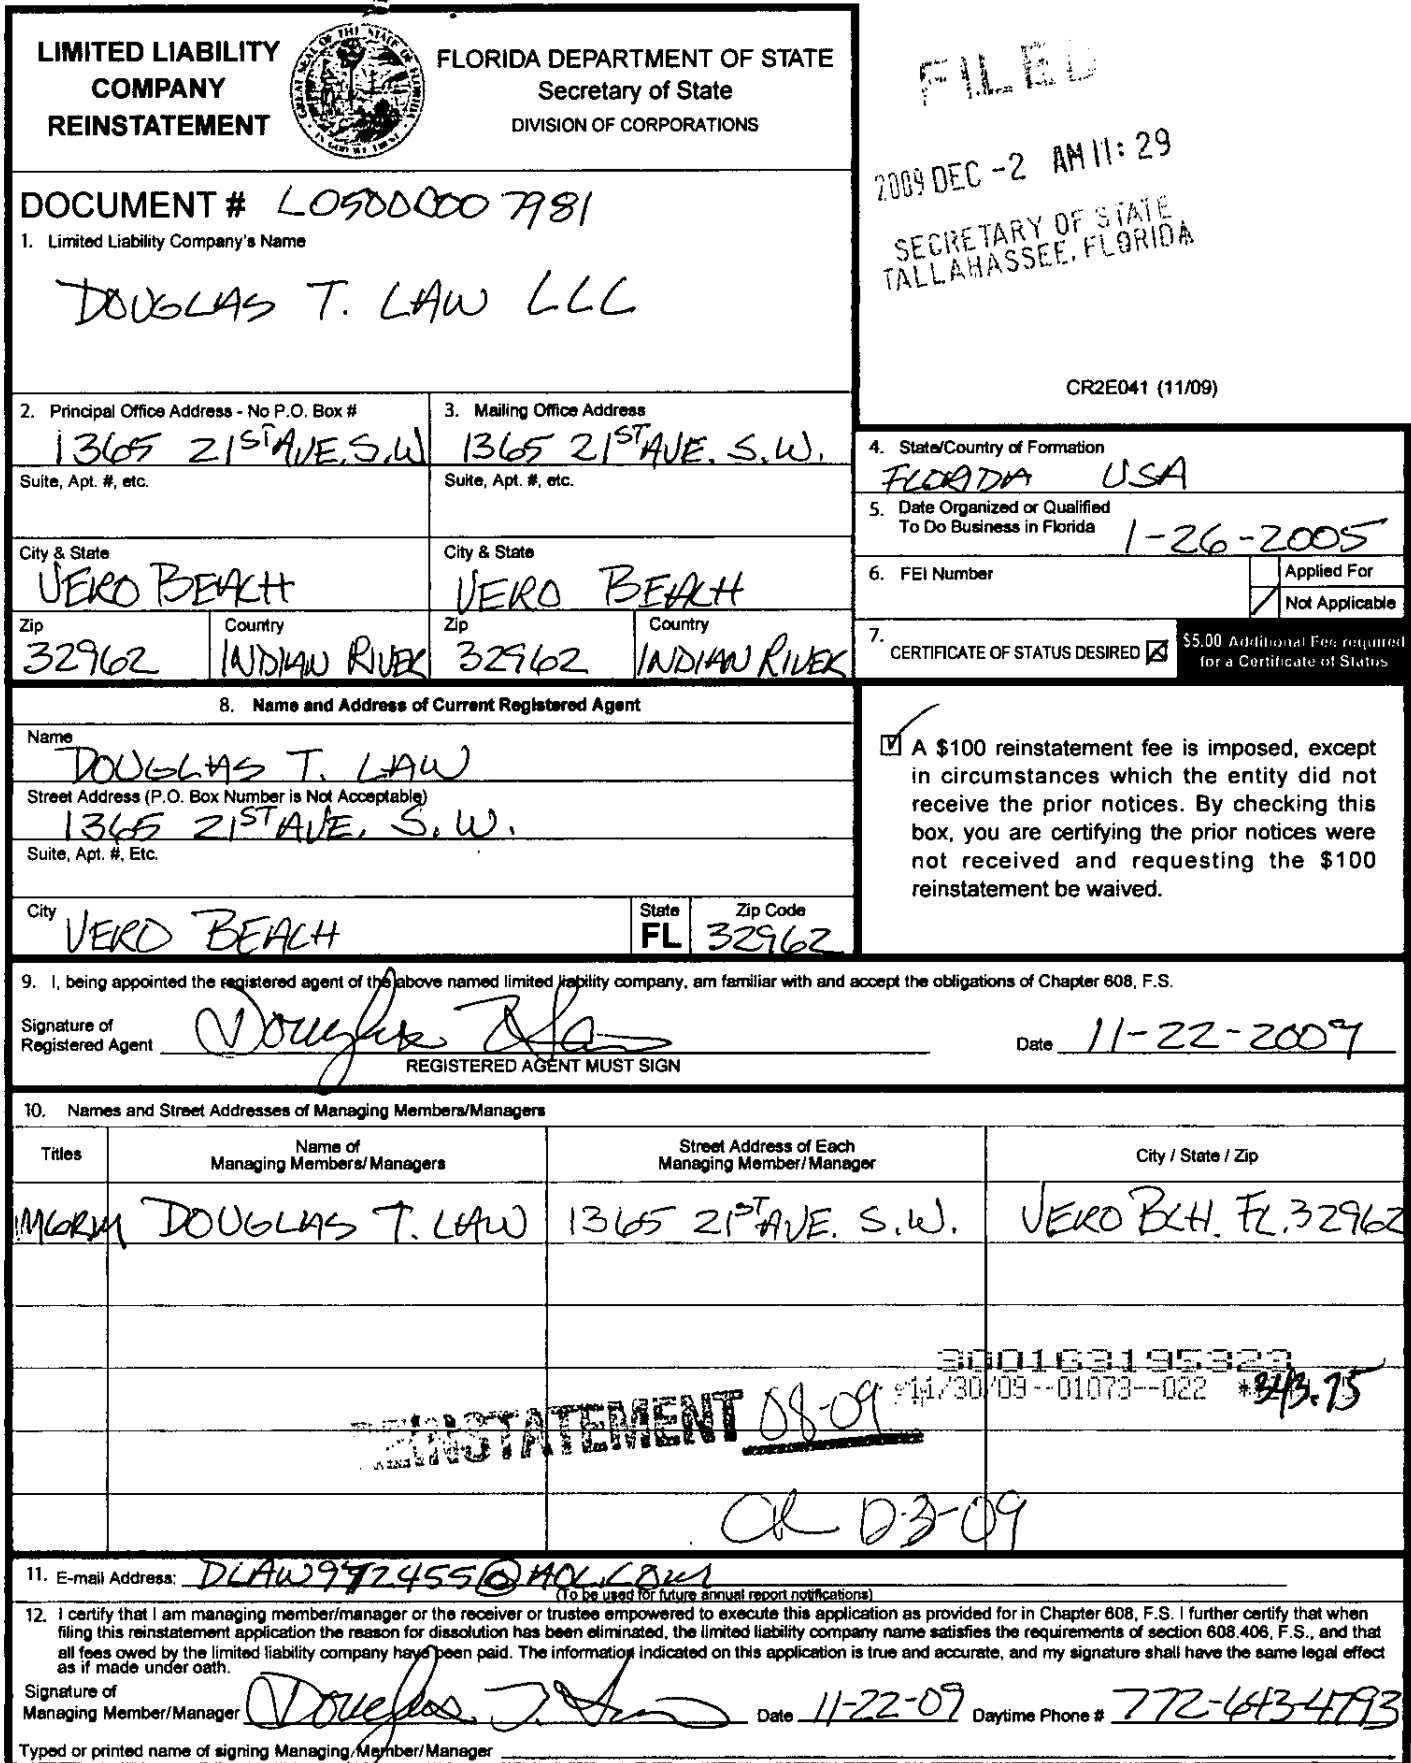 LIMITED LIABILITY
COMPANY
REINSTATEMENT
FLORIDA DEPARTMENT OF STATE
Secretary of State
DIVISION OF CORPORATIONS
FILED
2009 DEC -2 AM 11: 29
SECRETARY OF STATE
TALLAHASSEE, FLORIDA
DOCUMENT # L05000007981
1. Limited Liability Company's Name
DOUGLAS T. LAW LLC
CR2E041 (11/09)
2. Principal Office Address - No P.O. Box #
1365 21ST AVE. S.W
Suite, Apt. #, etc.
City & State
VERO BEACH
Zip
32962
Country
INDIAN RIVER
3. Mailing Office Address
1365 21ST AVE. S.W.
Suite, Apt. #, etc.
City & State
VERO BEACH
Zip
32962
Country
INDIAN RIVER
4. State/Country of Formation
FLORIDA USA
5. Date Organized or Qualified
To Do Business in Florida 1-26-2005
6. FEI Number
Applied For
Not Applicable
7. CERTIFICATE OF STATUS DESIRED
$5.00 Additional Fee required
for a Certificate of Status
8. Name and Address of Current Registered Agent
Name
DOUGLAS T. LAW
Street Address (P.O. Box Number is Not Acceptable)
1365 21ST AVE. S.W.
Suite, Apt. #, Etc.
City VERO BEACH
State
FL
Zip Code
32962
A $100 reinstatement fee is imposed, except
in circumstances which the entity did not
receive the prior notices. By checking this
box, you are certifying the prior notices were
not received and requesting the $100
reinstatement be waived.
9. I, being appointed the registered agent of the above named limited liability company, am familiar with and accept the obligations of Chapter 608, F.S.
Signature of
Registered Agent
Date 11-22-2009
REGISTERED AGENT MUST SIGN
10. Names and Street Addresses of Managing Members/Managers
Titles
Name of
Managing Members/Managers
Street Address of Each
Managing Member/Manager
City / State / Zip
MGRM DOUGLAS T. LAW 1365 21ST AVE. S.W. VERO BCH. FL. 32962
300163195323
11/30/09--01073--022 *343.75
REINSTATEMENT 08-09
11. E-mail Address:
(To be used for future annual report notifications)
12. I certify that I am managing member/manager or the receiver or trustee empowered to execute this application as provided for in Chapter 608, F.S. I further certify that when
filing this reinstatement application the reason for dissolution has been eliminated, the limited liability company name satisfies the requirements of section 608.406, F.S., and that
all fees owed by the limited liability company have been paid. The information indicated on this application is true and accurate, and my signature shall have the same legal effect
as if made under oath.
Signature of
Managing Member/Manager Douglas T. Law Date 11-22-09 Daytime Phone # 772-643-4793
Typed or printed name of signing Managing Member/Manager